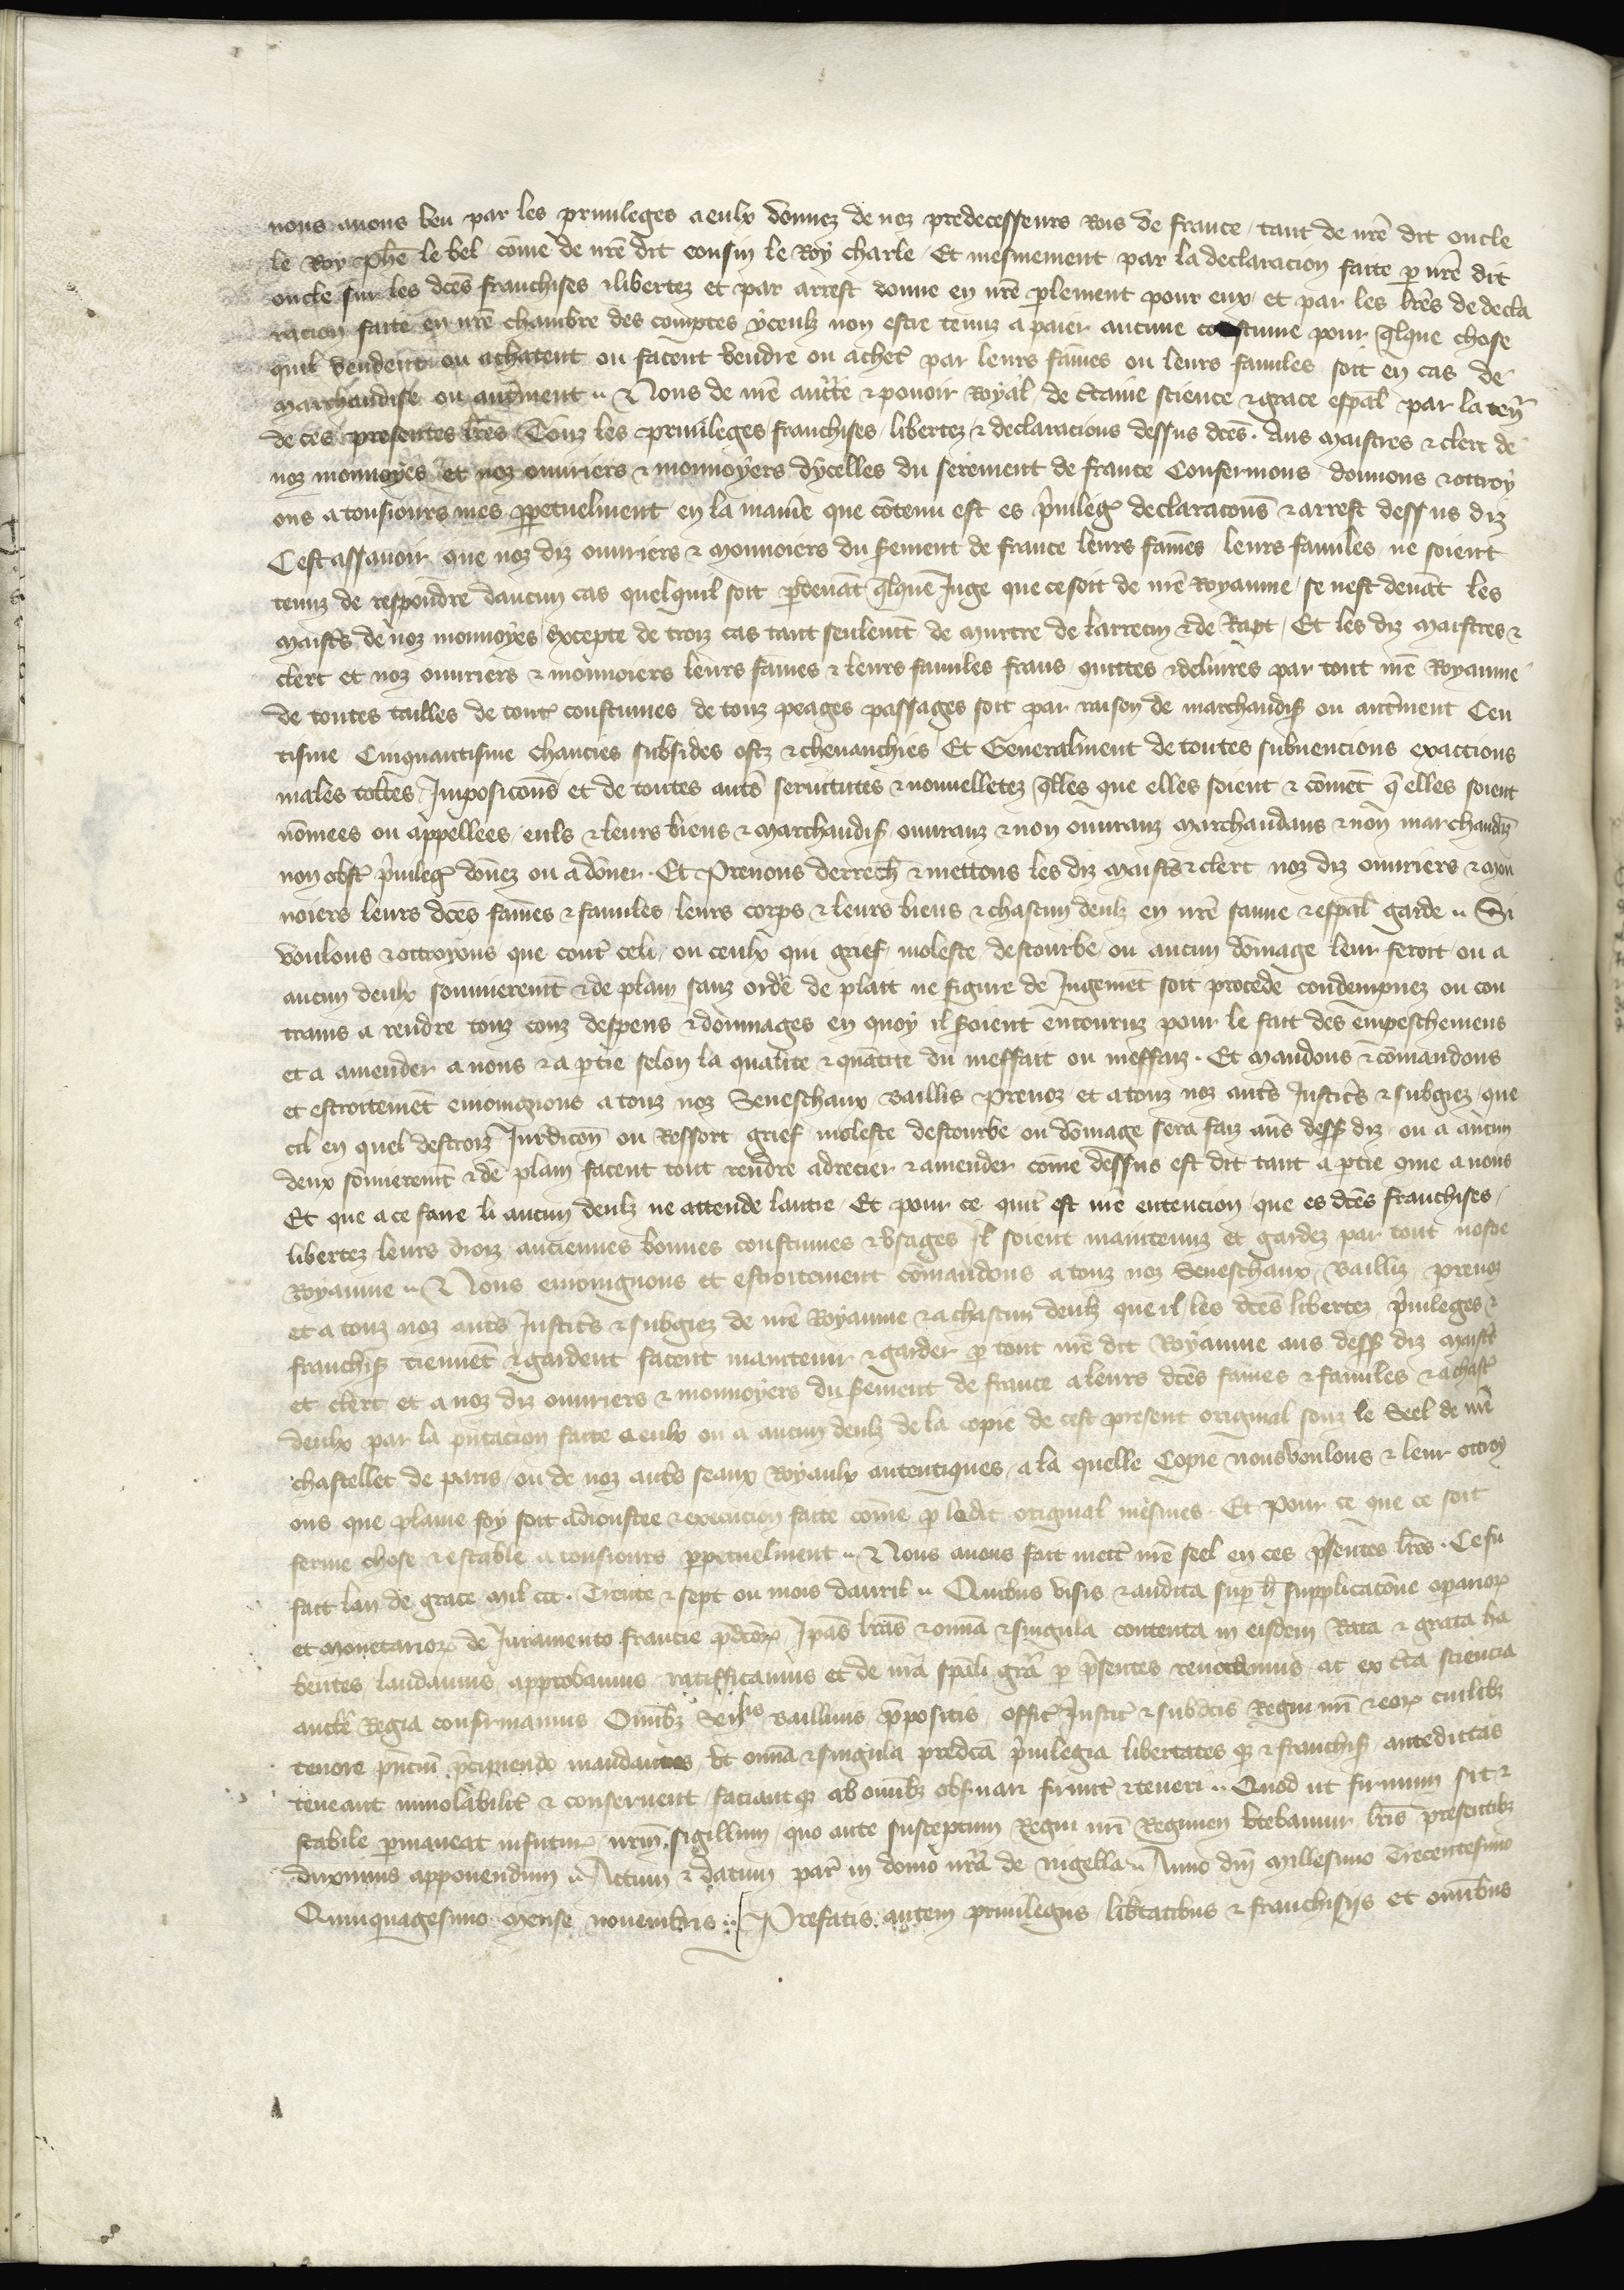 nous auons veu par les priuileges a eulx donnez de noz predecesseurs Rois de france / tant de nrẽ dit oncle
le Roy Phẽ le bel cõme de nrẽ dit cousin le Roy charle / Et mesmement par la declaracion faitte ꝑ nrẽ dit
oncle sur les dcẽs franchises ⁊ libertez et par arrest donne en nrẽ ꝑlement pour eux / et par les lrẽs de decla
racion faite en nrẽ chambre des comptes yceulz non estre tenuz a paier aucune coustume pour q̃lque chose
quil vendent ou achatent ou facent vendre ou achet̃ par leurs fãmes ou leurs familes soit en cas de
marchandise ou autmẽnt .. Nous de nrẽ auctte ⁊ pouoir Royal / de c̃taine science ⁊ grace esp̃al par la ten̄
de ces presentes lrẽs Touz les priuileges franchises / libertez ⁊ declaracions dessus dcẽs . Aus Maistres ⁊ clerc de
noz monnoyes et noz ouuriers ⁊ monnoyers dycelles du serement de france Confermons donnons ⁊ ottroy
ons a tousiours mes ꝑpetuelment en la manẽ que cõtenu est es p̃uileg̃ declaraconñs ⁊ arrest dessus diz
Cest assauoir que noz diz ouuriers ⁊ Monnoiers du s̃ement de france leurs fãmes / leurs familes ne soient
tenuz de respondre daucun cas quelquil soit ꝑdeuãt q̃lque Juge que ce soit de nrẽ Royaume / se nest deuãt les
maistr̃s de noz monnoyes / Excepte de troiz cas tant seulemẽt de Murtre de larrecin ⁊ de Rapt / Et les diz maistres ⁊
clerc et noz ouuriers ⁊ monnoiers leurs fãmes ⁊ leurs familes frans quittes ⁊ deliures par tout nrẽ Royaume
de toutes tailles de tout̃ coustumes / de touz peages passages soit par raison de marchandiss̃ ou autrẽment Cen
tisme Cinquantisme chaucies subsides ostz ⁊ cheuauchies Et Generalment de toutes subuencions exactions
males toltes / Imposiconñs et de toutes autrẽs seruitutes ⁊ nouuelletez q̃lles que elles soient ⁊ cõment q̃ elles soient
nõmees ou appellees / euls ⁊ leurs biens ⁊ Marchandis̃ ouuranz ⁊ non ouuranz Marchandans ⁊ non marchandãz
non obst̃ p̃uileg̃ dõnez ou a dõner . Et Prenons derrech̃ ⁊ mettons les diz maistr̃s ⁊ clerc noz diz ouuriers ⁊ mon
noiers leurs dcẽs fãmes ⁊ familes / leurs corps ⁊ leurs biens ⁊ chascun deulz en nrẽ sauue ⁊ esp̃al garde .. Si
voulons ⁊ ottroyons que cont̃ celi / ou ceulx qui grief / moleste / destourbe / ou aucun dõmage leur feroit / ou a
aucun deulx sommieremẽt ⁊ de plain sanz ordẽ de plait ne figure de Jugemẽt soit procede condempnez ou con
trains a rendre touz couz despens ⁊ dommages en quoy il s̃oient encouruz pour le fait des empeschemens
et a amender a nous ⁊ a ꝑtie selon la qualite ⁊ quãtite du meffait ou meffaiz . Et Mandons ⁊ cõmandons
et estroitemẽt enioingnons a touz noz Seneschaux Baillis Preuoz et a touz noz autrẽs Justicr̃s ⁊ subgiez / que
cil en quel destroiz Jurdicoñ ou Ressort grief moleste destourbe ou dõmage sera faiz aus dess̃ diz ou a aucun
deux sõmieremẽt ⁊ de plain facent tout rendre adrecier ⁊ amender cõme dessus est dit tant a ꝑtie cme a nous
Et que a ce faire li aucun deulz ne attende lautre / Et pour ce quil est nrẽ entencion / que es dcẽs franchises /
libertez leurs droiz anciennes bonnes coustumes ⁊ vsages Il soient maintenuz et gardez par tout nostre
Royaume .. Nous enioingnons et estroitement cõmandons a touz noz Seneschaux / Bailliz / preuoz
et a touz noz autrẽs Justicr̃s ⁊ subgiez de nrẽ Royaume ⁊ a chascun deulz que il les dcẽs libertez p̃uileges ⁊
franchiss̃ tiennẽt ⁊ gardent facent maintenir ⁊ garder ꝑ tout nrẽ dit Royaume aus dess̃ diz maistr̃
et clerc et a noz diz ouuriers ⁊ monnoyers du s̃ement de france a leurs dcẽs fãmes ⁊ familes ⁊ a chasc̃
deulx par la p̃ntacion faitte a eulx ou a aucun deulz de la copie de cest present original souz le Seel de nrẽ
chastellet de paris / ou de noz autrẽs seaux Royaulx autentiques / a la quelle Copie nous voulons ⁊ leur ottroy
ons que plaine foy soit adioustee ⁊ execucion faitte cõme ꝑ ledit original mesmes . Et Pour ce que ce soit
ferme chose ⁊ estable a tousiours ꝑpetuelment .. Nous auons fait mett̃ nrẽ seel en ces p̃sentes lrẽs . Ce fu
fait lan de grace mil ccc . Trente ⁊ sept ou mois dauril .. Quibus visis ⁊ audita suꝑ h̃ supplicacõne operarioꝝ
et Monetarioꝝ de Juramento francie p̃dcõꝝ / Ip̃as lrãs ⁊ omñia ⁊ singula contenta in eisdem Rata ⁊ grata ha
bentes / laudamus approbamus ratifficamus et de nrã sp̃ali grã ꝑ p̃sentes renouamus ac ex c̃ta sciencia
auctẽ Regia confirmamus Omĩbꝫ Sen̄lis Balliuis p̃positis / offic̃ Justic̃ ⁊ subdcĩs Regni nrĩ ⁊ eoꝝ cuilibꝫ
tenore p̃nciũ p̃cipiendo mandantes / Vt omñia ⁊ singula predcã p̃uilegia libertates qꝫ ⁊ franchis̃ antedictas
teneant inuiolabilit̃ ⁊ conseruent / faciantqꝫ ab omĩbꝫ obseruari firmit̃ ⁊ teneri .. Quod ut firmum sit ⁊
stabile ꝑmaneat infutur̃ nrũm sigillum / quo ante susceptum Regni nrĩ Regimen vtebamur lrĩs presentibꝫ
duximus apponendum .. Actum ⁊ datum par̃ in domo nrã de nigella .. Anno dnĩ Millesimo Trecentesimo
Quinquagesimo mense nouembris .. Prefatis autem priuilegiis / lib̃tatibus ⁊ franchisijs et omnibus